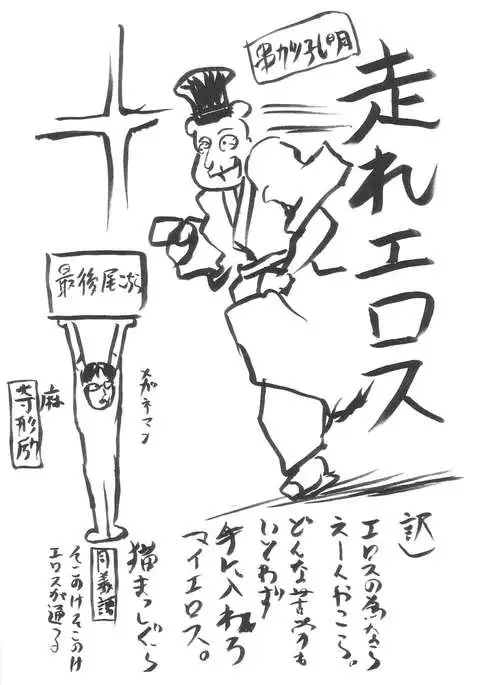 走れエロス
串カツ孔明
最後尾
メガネマン
訳)
エロスの為なら
えーんやっこら。
どんな苦労も
いとわず
手に入れろ
マイエロス。
猫まっしぐら
そこのけそこのけ
エロスが通る